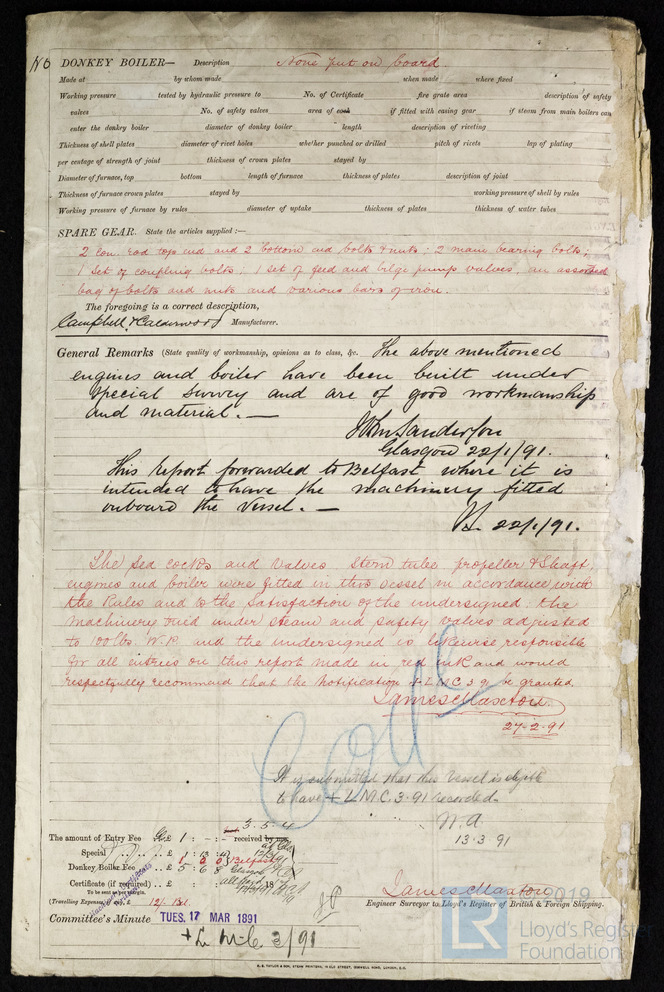 No DONKEY BOILER— Description None put on board
Made at by whom made when made where fixed
Working pressure tested by hydraulic pressure to No. of Certificate fire grate area description of safety
valves No. of safety valves area of each if fitted with easing gear if steam from main boilers can
enter the donkey boiler diameter of donkey boiler length description of riveting
Thickness of shell plates diameter of rivet holes whether punched or drilled pitch of rivets lap of plating
per centage of strength of joint thickness of crown plates stayed by
Diameter of furnace, top bottom length of furnace thickness of plates description of joint
Thickness of furnace crown plates stayed by working pressure of shell by rules
Working pressure of furnace by rules diameter of uptake thickness of plates thickness of water tubes
SPARE GEAR. State the articles supplied :—
2 Con. rod top end and 2 bottom end bolts & nuts; 2 main bearing bolts;
1 set of coupling bolts. 1 set of feed and bilge pump valves, an assorted
bag of bolts and nuts and various bars of iron.
The foregoing is a correct description,
Campbell & Calderwood Manufacturer.
General Remarks (State quality of workmanship, opinions as to class, &c. The above mentioned
engines and boiler have been built under
special survey and are of good workmanship
and material. —
Jno Sanderson
Glasgow 22/1/91.
This report forwarded to Belfast where it is
intended to have the machinery fitted
onboard the vessel. —
22/1/91.
The Sea cocks and Valves stern tube propeller & Shaft,
engines and boiler were fitted in this vessel in accordance with
the Rules and to the Satisfaction of the undersigned: the
machinery tried under steam and safety valves adjusted
to 100 lbs. W.P. and the undersigned is likewise responsible
for all entries on this report made in red ink and would
respectfully recommend that the Notification + LMC 3 91 be granted
James Maxton
27-2-91
It is submitted that this vessel is eligible
to have + L.M.C. 3.91 recorded.
W.A.
13.3.91
3.5.4
The amount of Entry Fee £ 1 : - : - received by me,
Special .. .. £ 1 : 13 : 4
1 0 0 } Belfast
Donkey Boiler Fee .. .. £ 5 6 8 Glasgow
Certificate (if required) .. £ : : 18
To be sent as per margin.
(Travelling Expenses, if any, £ 12/-
James Maxton
Engineer Surveyor to Lloyd's Register of British & Foreign Shipping.
Committee's Minute TUES. 17 MAR 1891
+ L.M.C 3/91
© 2019
LR Lloyd's Register
Foundation